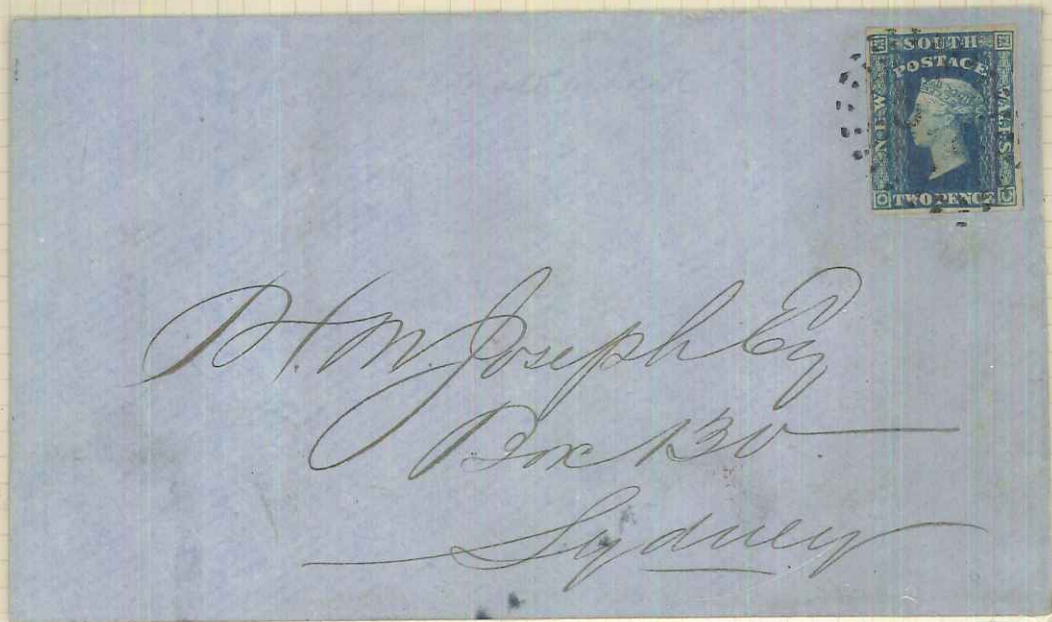 SOUTH
POSTAGE
NEW
WALES
TWO PENCE
H. M. Joseph Esq
Box 130
Sydney